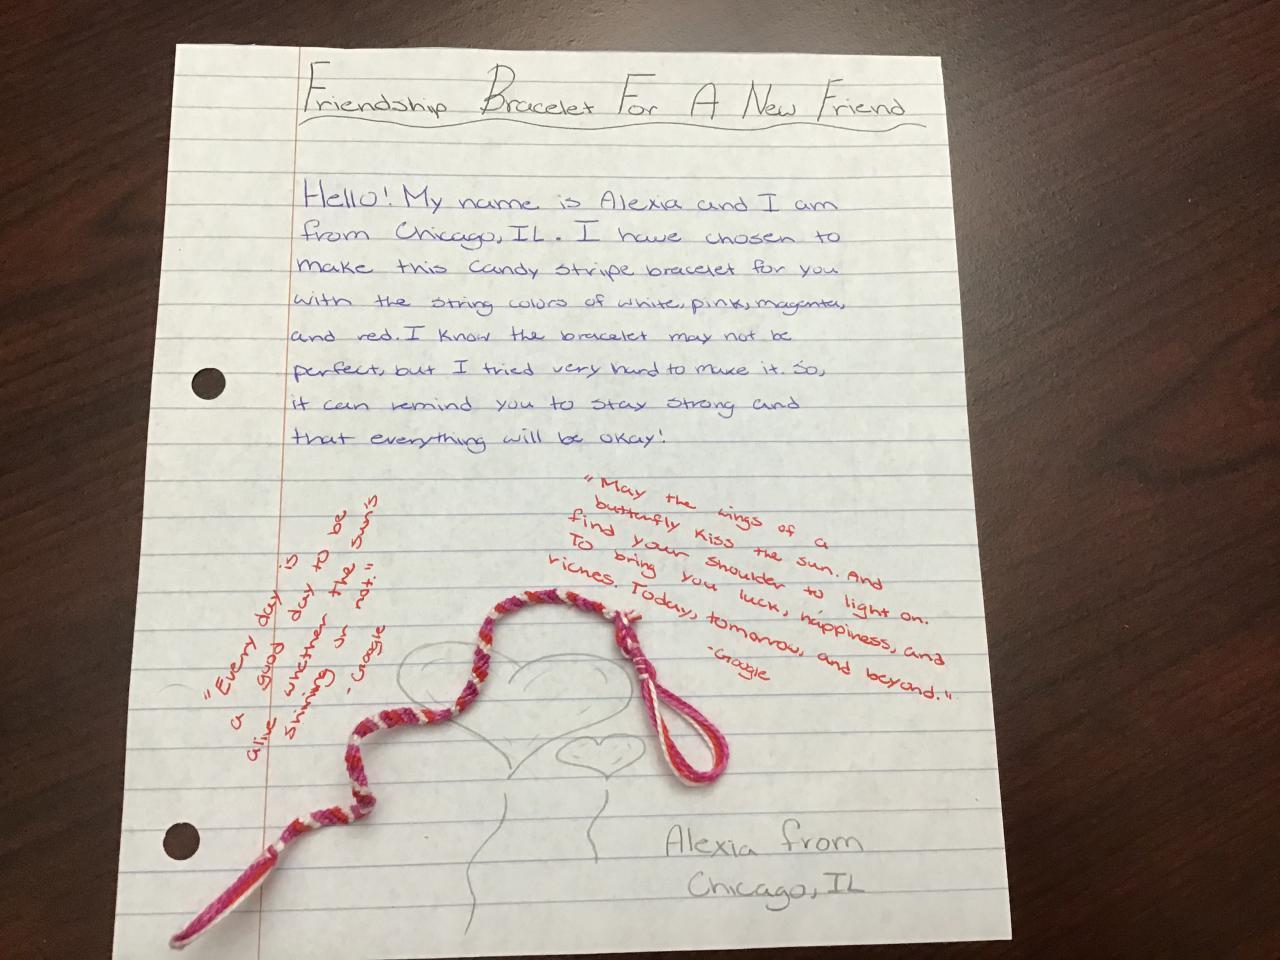 Friendship Bracelet For A New Friend
Hello! My name is Alexia and I am
from Chicago, IL. I have chosen to
make this candy stripe bracelet for you
with the string colors of white, pink, magenta,
and red. I know the bracelet may not be
perfect, but I tried very hard to make it. So,
it can remind you to stay strong and
that everything will be okay!
"Every day is
a good day to be
alive whether the sun's
shining or not."
- Google
"May the wings of a
butterfly kiss the sun. And
find your shoulder to light on.
To bring you luck, happiness, and
riches. Today, tomorrow, and beyond."
- Google
Alexia from
Chicago, IL